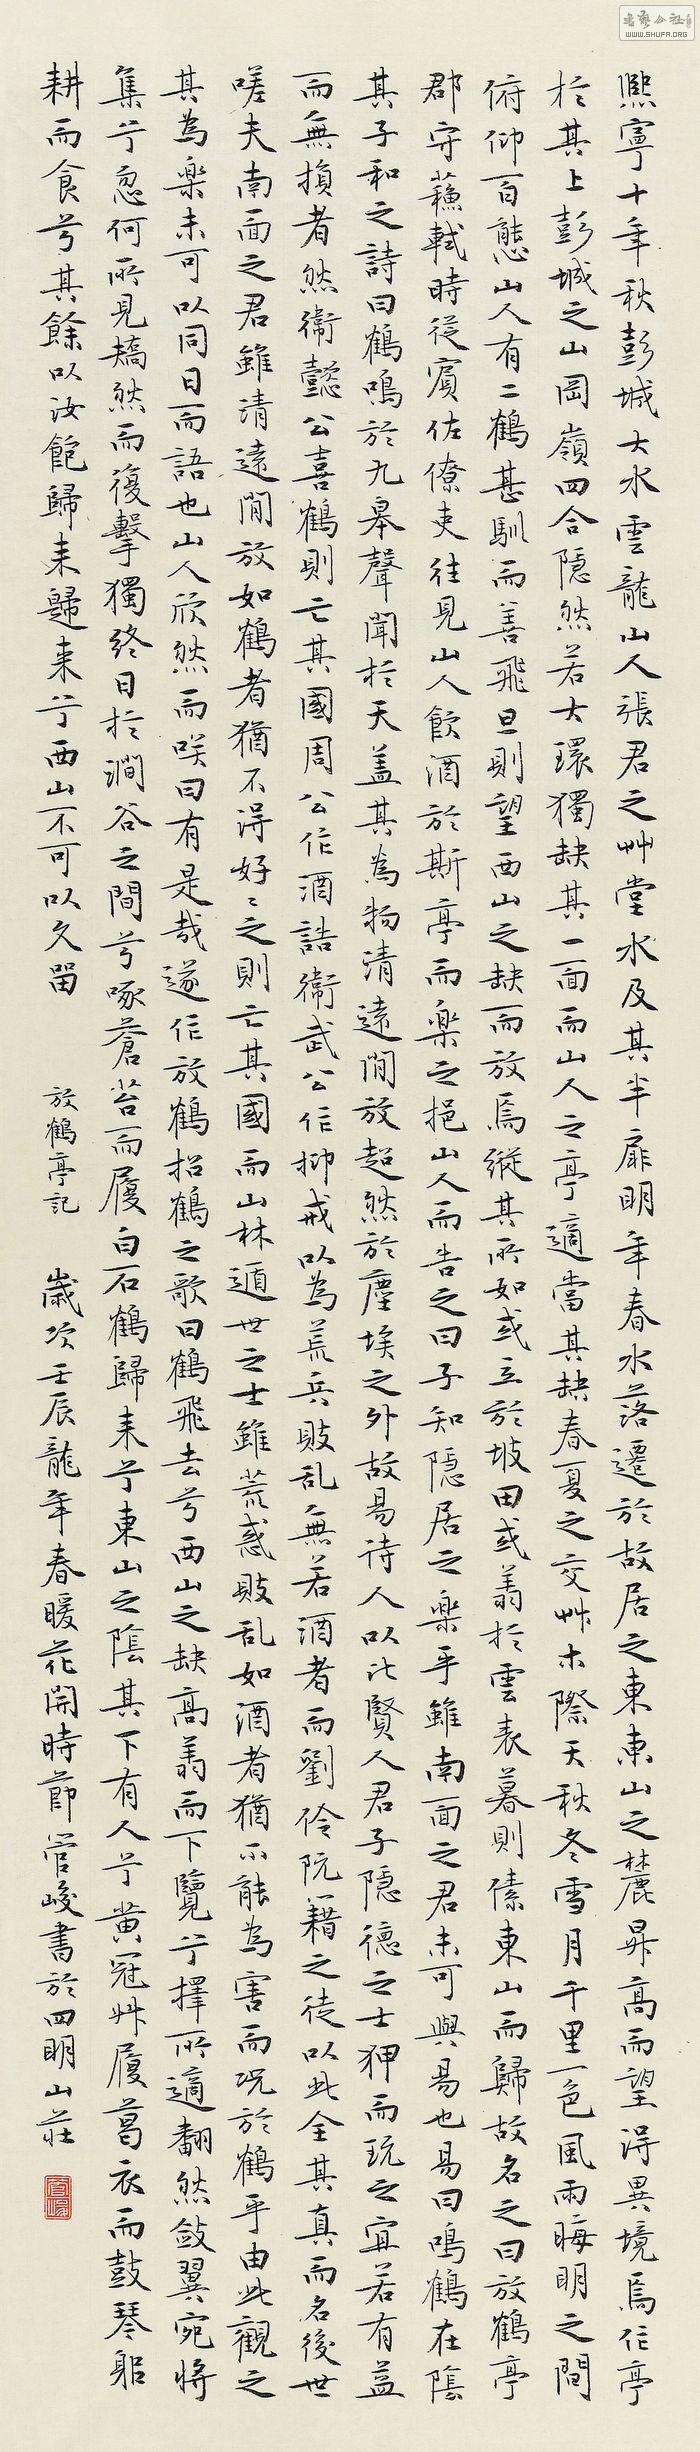 熙寧十年秋彭城大水雲龍山人張君之艸堂水及其半扉明年春水落遷於故居之東東山之麓昇高而望得異境焉作亭
於其上彭城之山岡嶺四合隱然若大環獨缺其一面而山人之亭適當其缺春夏之交艸木際天秋冬雪月千里一色風雨晦明之間
俯仰百態山人有二鶴甚馴而善飛旦則望西山之缺而放焉縱其所如或立於坡田或翥於雲表暮則傃東山而歸故名之曰放鶴亭
郡守蘓軾時從賓佐僚吏往見山人飲酒於斯亭而樂之挹山人而告之曰子知隱居之樂乎雖南面之君未可與易也易曰鳴鶴在陰
其子和之詩曰鶴鳴於九皋聲聞於天蓋其為物清遠閒放超然於塵埃之外故易詩人以比賢人君子隱德之士狎而玩之宜若有益
而無損者然衞懿公喜鶴則亡其國周公作酒誥衞武公作抑戒以為荒兵敗乱無若酒者而劉伶阮籍之徒以此全其真而名後世
嗟夫南面之君雖清遠閒放如鶴者猶不得好〻之則亡其國而山林遁世之士雖荒惑敗乱如酒者猶不能為害而況於鶴乎由此觀之
其為樂未可以同日而語也山人欣然而咲曰有是哉遂作放鶴招鶴之歌曰鶴飛去兮西山之缺高翥而下覽兮擇所適翻然斂翼宛將
集兮忽何所見矯然而復擊獨終日於澗谷之間兮啄蒼苔而履白石鶴歸来兮東山之陰其下有人兮黄冠艸履葛衣而鼓琴躬
耕而食兮其餘以汝飽歸来歸来兮西山不可以久留 放鶴亭記 歲次壬辰龍年春暖花開時節管峻書於四明山莊
WWW.SHUFA.ORG